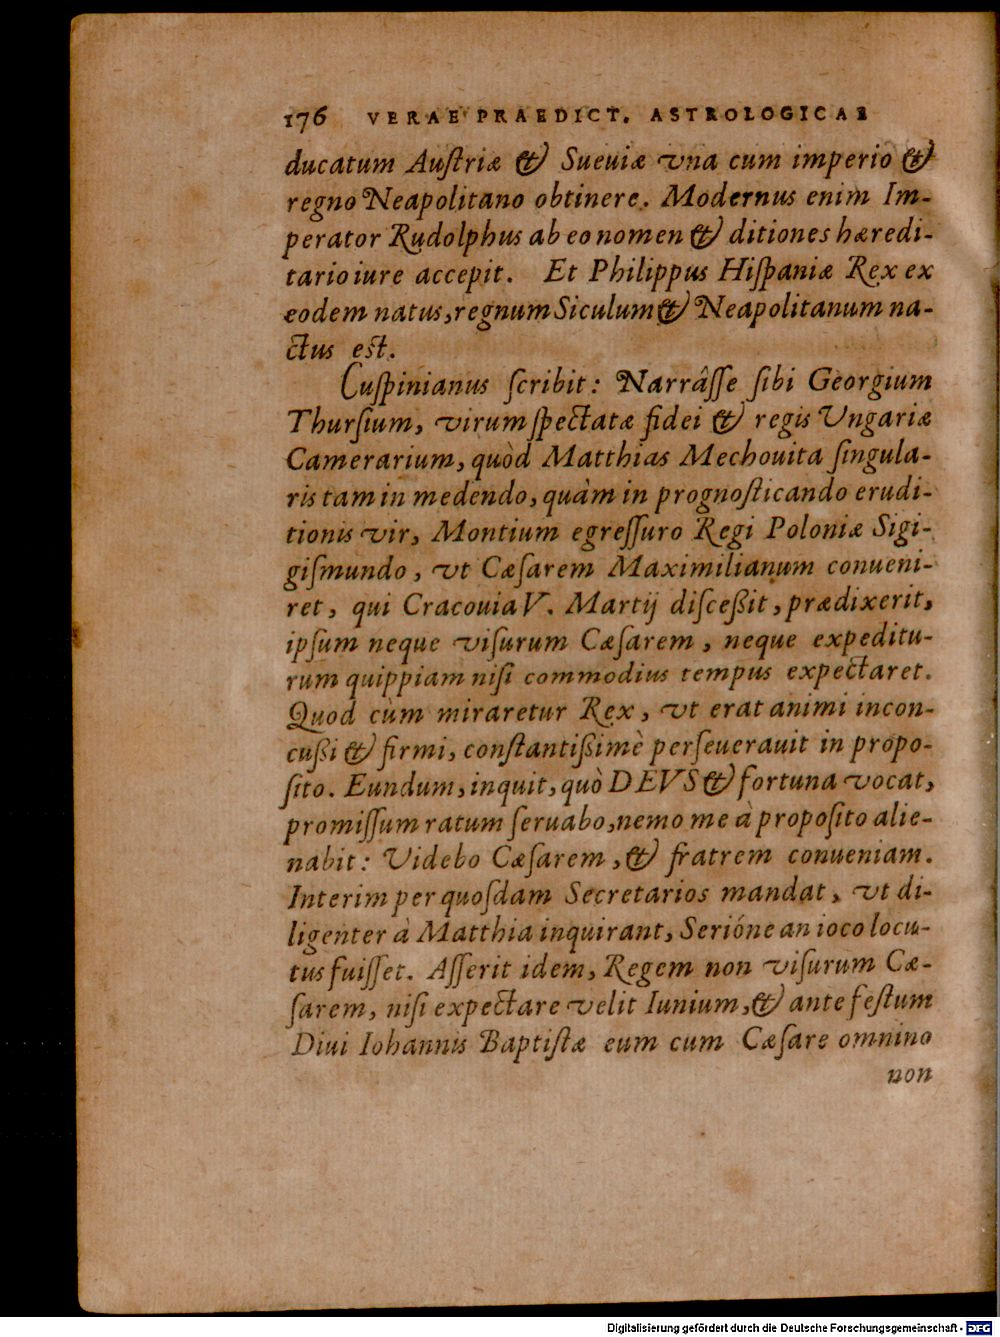 176 VERAE PRAEDICT. ASTROLOGICAE
ducatum Auſtriæ & Sueuiæ vna cum imperio &
regno Neapolitano obtinere. Modernus enim Im-
perator Rudolphus ab eo nomen & ditiones hæredi-
tario iure accepit. Et Philippus Hiſpaniæ Rex ex
eodem natus, regnum Siculum & Neapolitanum na-
ctus est.
Cuſpinianus ſcribit: Narrâſſe ſibi Georgium
Thurſium, virum ſpectatæ fidei & regis Vngariæ
Camerarium, quòd Matthias Mechouita ſingula-
ris tam in medendo, quàm in prognoſticando erudi-
tionis vir, Montium egreſſuro Regi Poloniæ Sigi-
giſmundo, vt Cæſarem Maximilianum conueni-
ret, qui Cracouia V. Martij diſceßit, prædixerit,
ipſum neque viſurum Cæſarem, neque expeditu-
rum quippiam niſi commodius tempus expectaret.
Quod cùm miraretur Rex, vt erat animi incon-
cußi & firmi, conſtantißimè perſeuerauit in propo-
ſito. Eundum, inquit, quò DEVS & fortuna vocat,
promiſſum ratum ſeruabo, nemo me à propoſito alie-
nabit: Videbo Cæſarem, & fratrem conueniam.
Interim per quoſdam Secretarios mandat, vt di-
ligenter à Matthia inquirant, Serióne an ioco locu-
tus fuiſſet. Aſſerit idem, Regem non viſurum Cæ-
ſarem, niſi expectare velit Iunium, & ante feſtum
Diui Iohannis Baptiſtæ eum cum Cæſare omnino
non
Digitalisierung gefördert durch die Deutsche Forschungsgemeinschaft - DFG